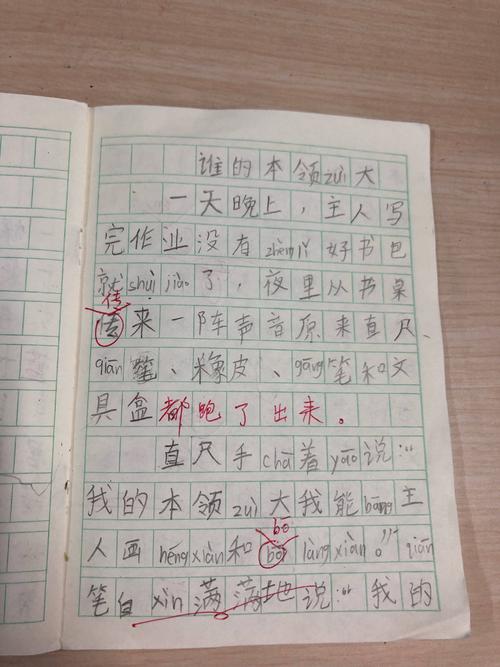 谁的本领zuì大
一天晚上，主人写
完作业没有zhěnglǐ好书包
就shuìjiào了，夜里从书桌
传
传来一阵声音原来直尺、
qiān笔、橡皮、gāng笔和文
具盒都跑了出来。
直尺手chā着yāo说：“
我的本领zuì大我能bāng主
bō
人画héngxiàn和bōlàngxiàn。”qiān
笔自xìn满满地说：“我的